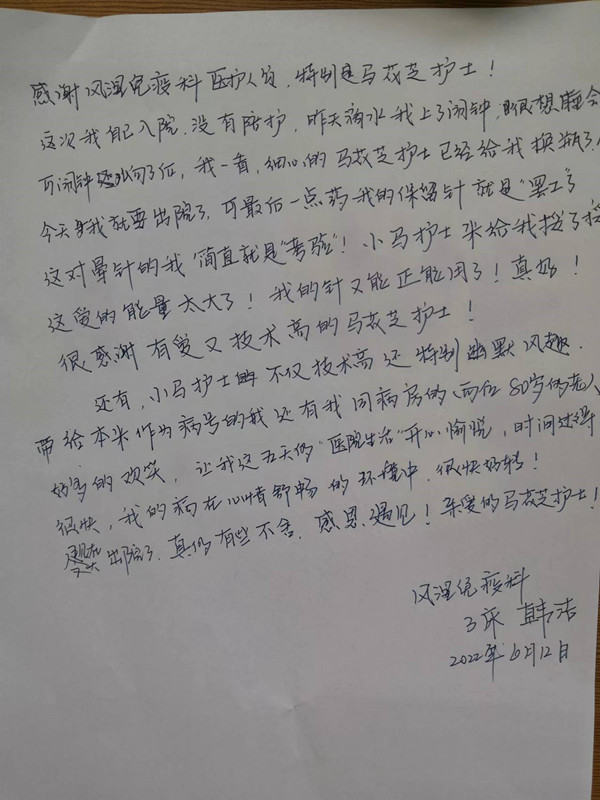 感谢风湿免疫科医护人员,特别是马茂芝护士!
这次我自己入院,没有陪护,昨天滴水我上了闹钟,很想睡会
可闹钟还没响了,我一看,细心的马茂芝护士已经给我换瓶了.
今天我就要出院了,可最后一点药我的保留针就是“罢工”了
这对晕针的我简直就是“考验”!小马护士来给我揉了揉
这爱的能量太大了!我的针又能正能用了!真好!
很感谢有爱又技术高的马茂芝护士!
还有,小马护士不仅技术高还特别幽默风趣.
带给本来作为病号的我还有我同病房的(两位80岁的老人)
好多的欢笑,让我这五天的“医院生活”开心愉悦,时间过得
很快,我的病在心情舒畅的环境中,很快好转!
要出院了,真的有些不舍,感恩遇见!亲爱的马茂芝护士!
风湿免疫科
3床 韩洁
2022年6月12日